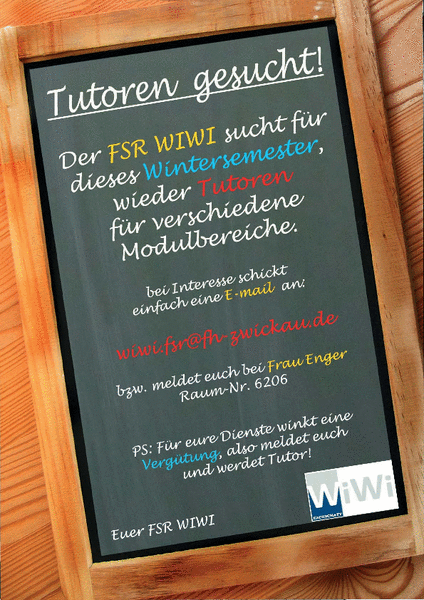 Tutoren gesucht!
Der FSR WIWI sucht für
dieses Wintersemester,
wieder Tutoren
für verschiedene
Modulbereiche.
bei Interesse schickt
einfach eine E-mail an:
wiwi.fsr@fh-zwickau.de
bzw. meldet euch bei Frau Enger
Raum-Nr. 6206
PS: Für eure Dienste winkt eine
Vergütung, also meldet euch
und werdet Tutor!
WiWi
Euer FSR WIWI